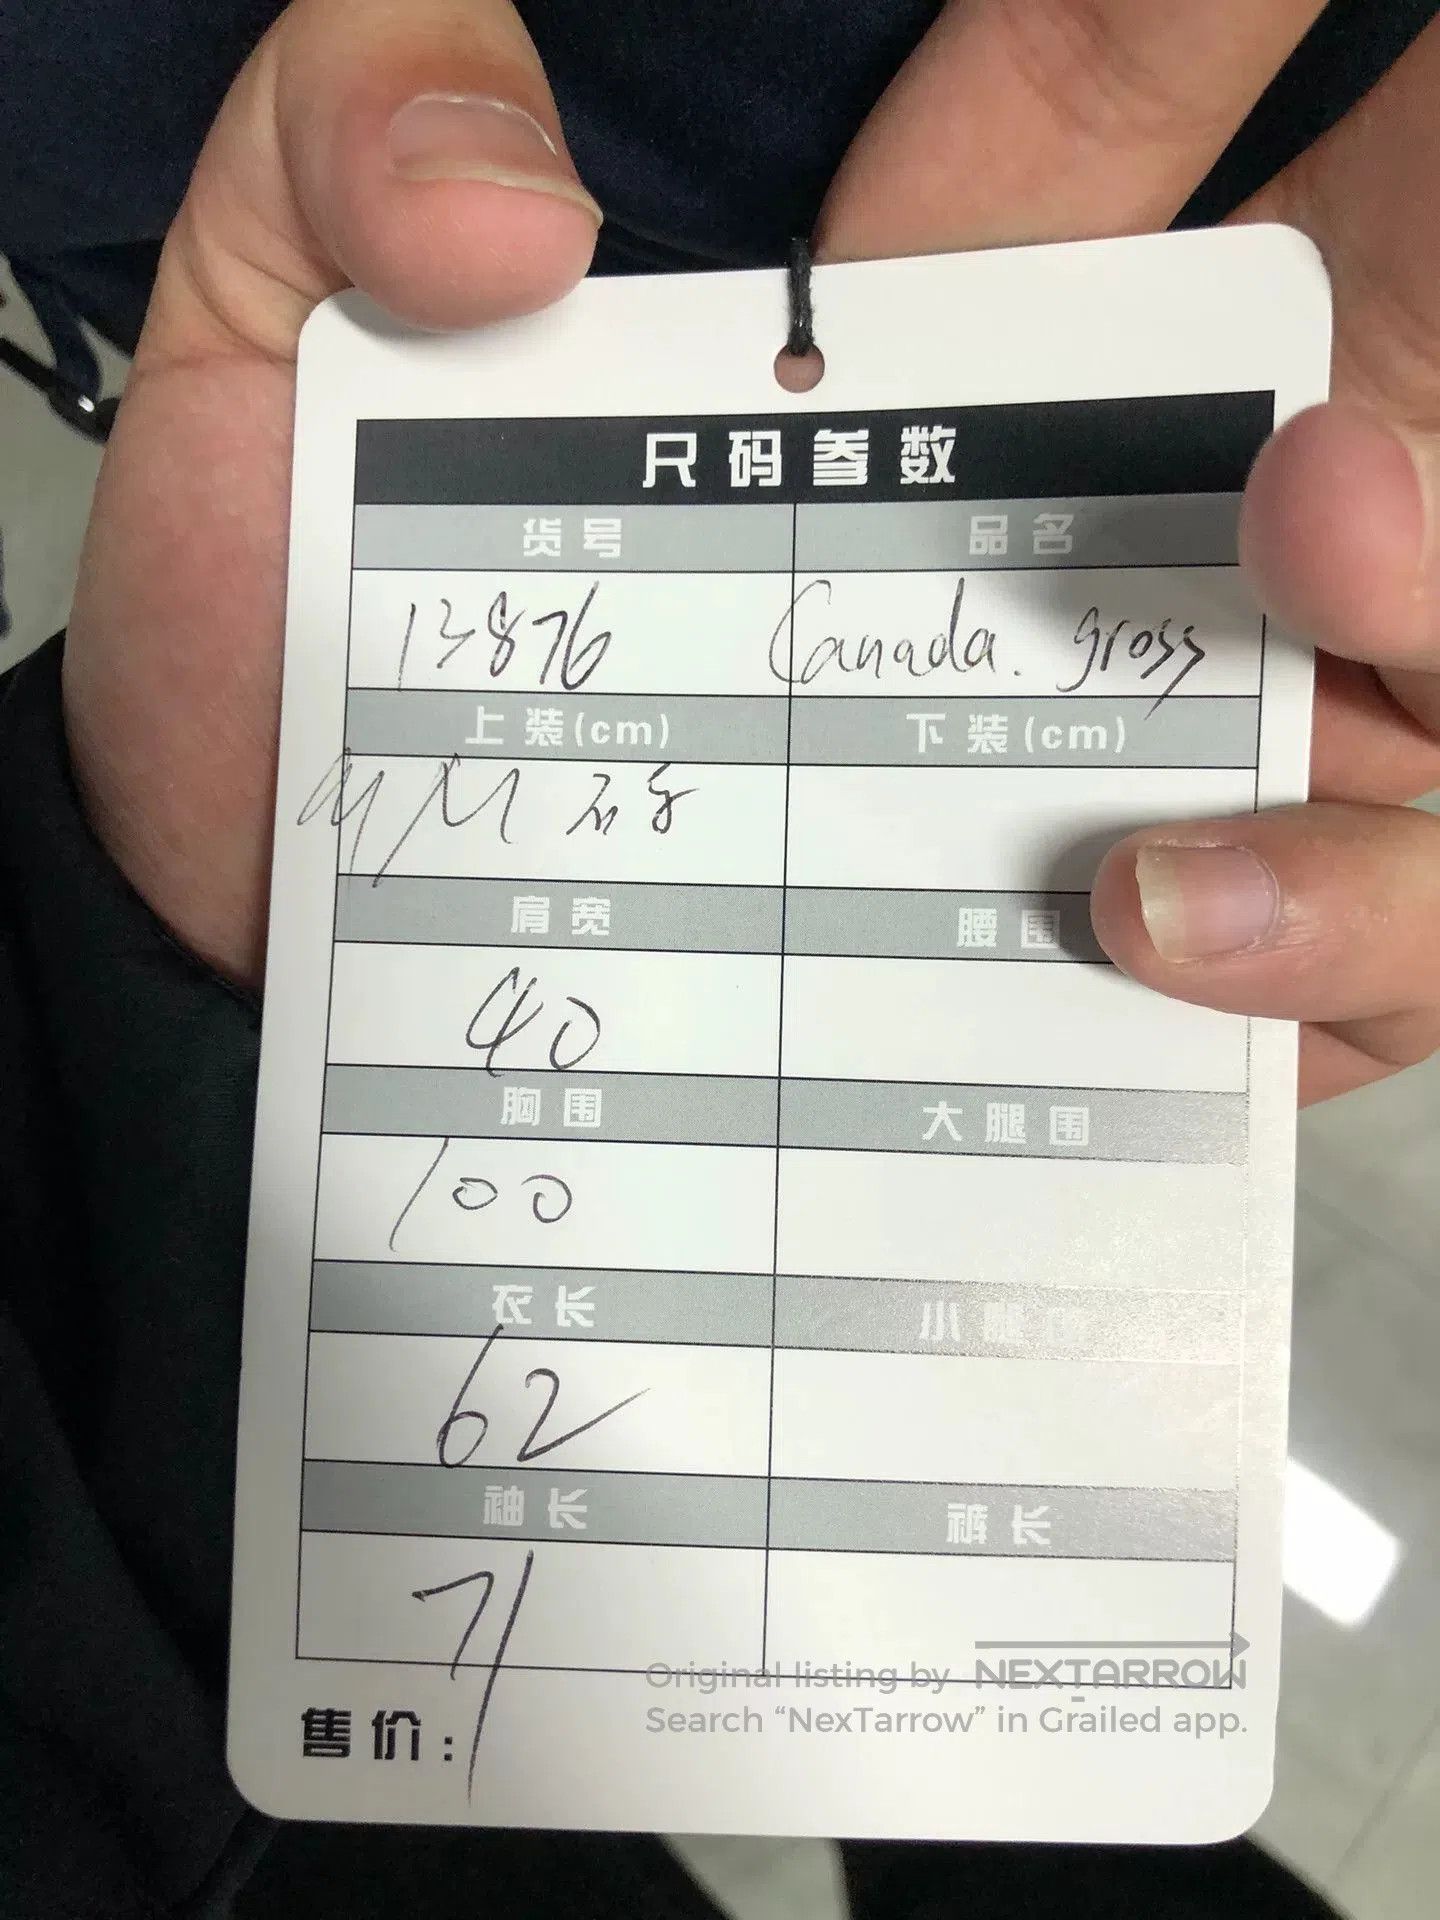 尺码参数
货号 品名
13876 Canada. gross
上装(cm) 下装(cm)
M
肩宽 腰围
40
胸围 大腿围
100
衣长 小腿围
62
袖长 裤长
71
售价:
Original listing by NEXTARROW
Search “NexTarrow” in Grailed app.